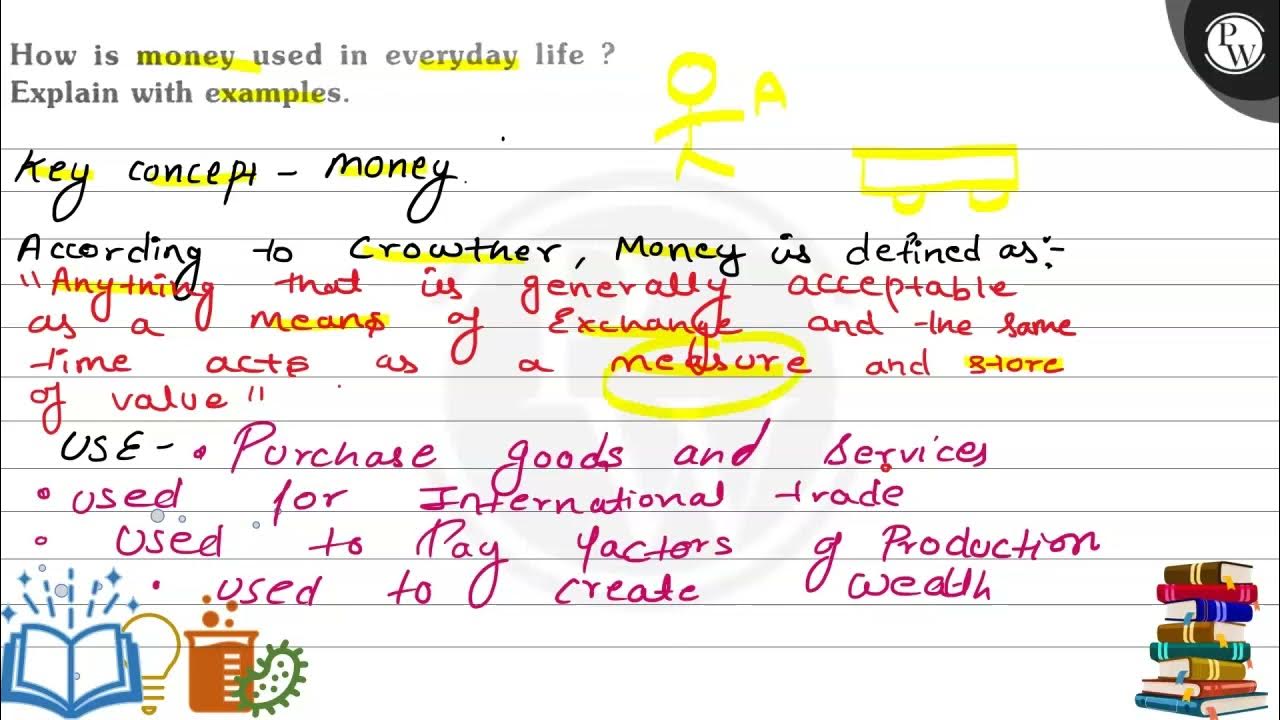 How is money used in everyday life ?
Explain with examples.
PW
A
Key concept - Money.
According to Crowther, Money is defined as :-
"Anything that is generally acceptable
as a means of Exchange and the same
time acts as a measure and store
of value"
USE - • Purchase goods and services
• used for International trade
• used to Pay factors of Production
• used to create wealth